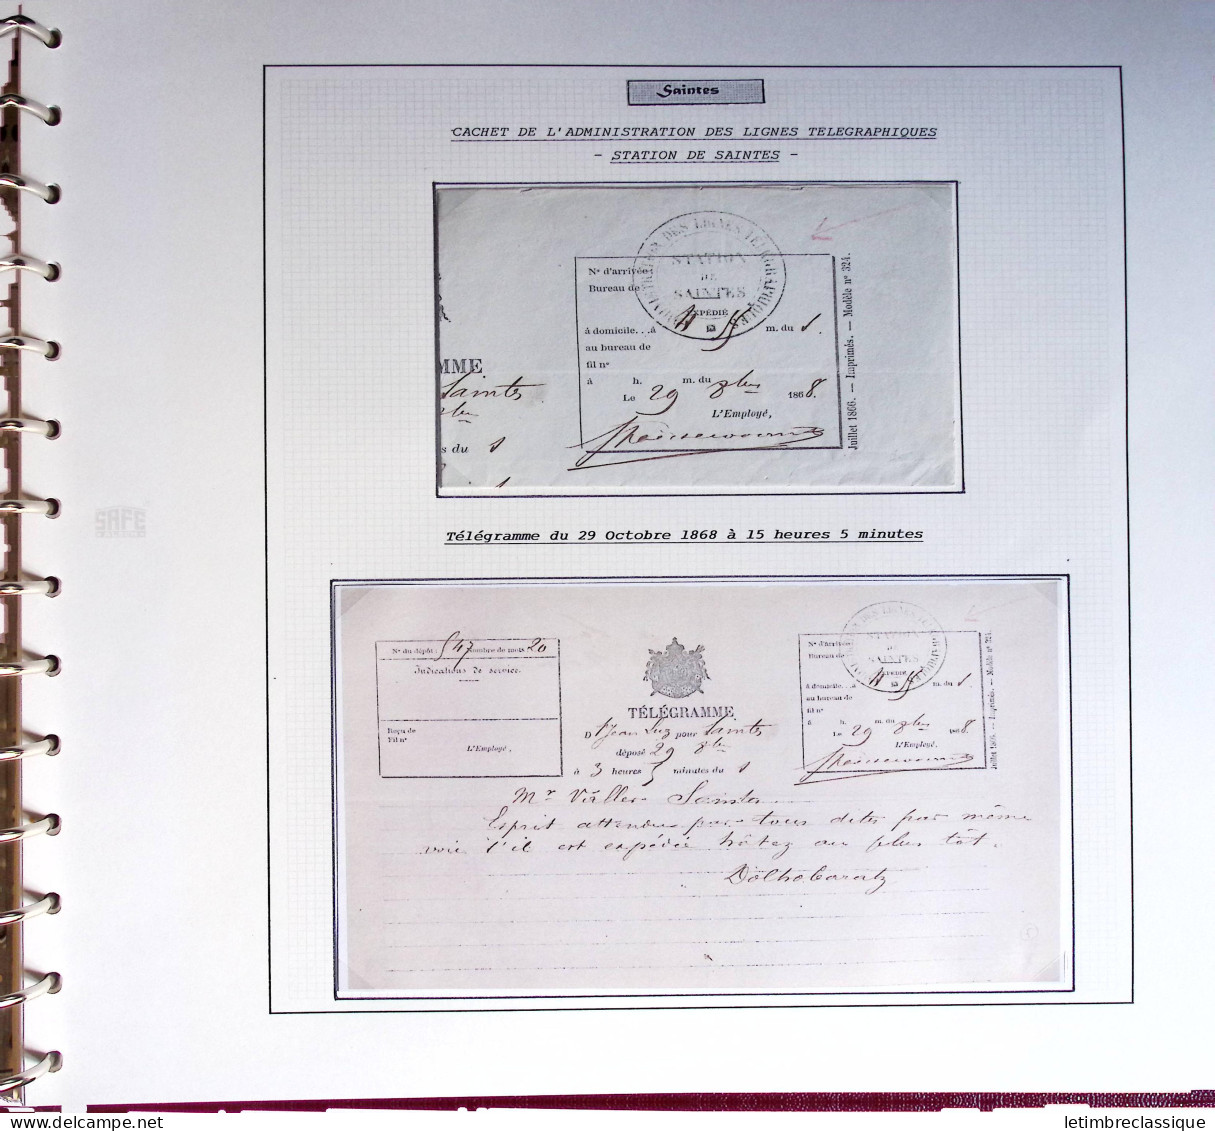 Saintes
CACHET DE L'ADMINISTRATION DES LIGNES TELEGRAPHIQUES
- STATION DE SAINTES -
ADMINISTRATION DES LIGNES TÉLÉGRAPHIQUES
STATION
DE
SAINTES
N° d'arrivée
Bureau de
EXPÉDIÉ
à domicile...à m. du s
au bureau de
fil n°
à h. m. du
Le 29 8bre 1868.
L'Employé,
Juillet 1866. — Imprimés. — Modèle n° 324.
MME
Saintes
8bre
s du s
Télégramme du 29 Octobre 1868 à 15 heures 5 minutes
N° du dépôt: 547 Nombre de mots 20
Indications de service.
Reçu de
Fil n°
L'Employé,
TÉLÉGRAMME
D St Jean Luz pour Saintes
déposé 29 8bre
à 3 heures 5 minutes du s
ADMINISTRATION DES LIGNES TÉLÉGRAPHIQUES
STATION
DE
SAINTES
N° d'arrivée
Bureau de
EXPÉDIÉ
à domicile...à m. du s
au bureau de
fil n°
à h. m. du
Le 29 8bre 1868.
L'Employé,
Juillet 1866. — Imprimés. — Modèle n° 324.
Mr Viller Saintes
Esprit attendu par tous dites par même
voie s'il est expédié hâtez au plus tôt.
Dolhabaratz
SAFE
letimbreclassique